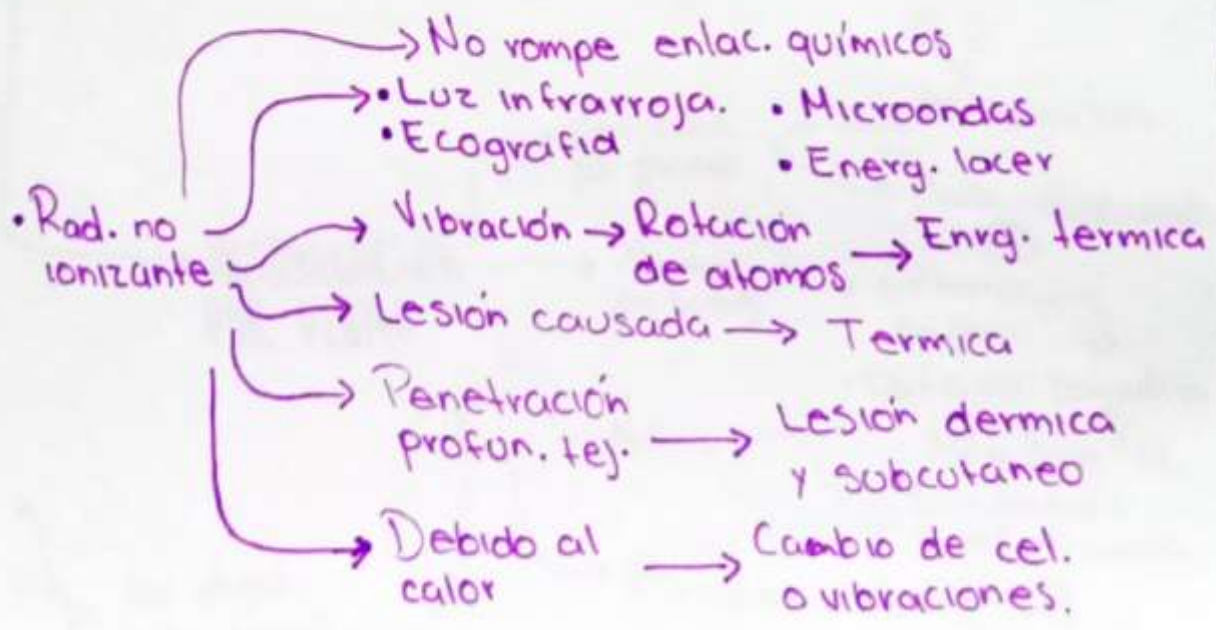 No rompe enlac. químicos
• Luz infrarroja. • Microondas
• Ecografia
• Energ. lacer
• Rad. no
ionizante
Vibración → Rotación
de atomos → Enrg. termica
Lesión causada → Termica
Penetración
profun. tej. → Lesión dermica
y subcutaneo
Debido al
calor → Cambio de cel.
o vibraciones.